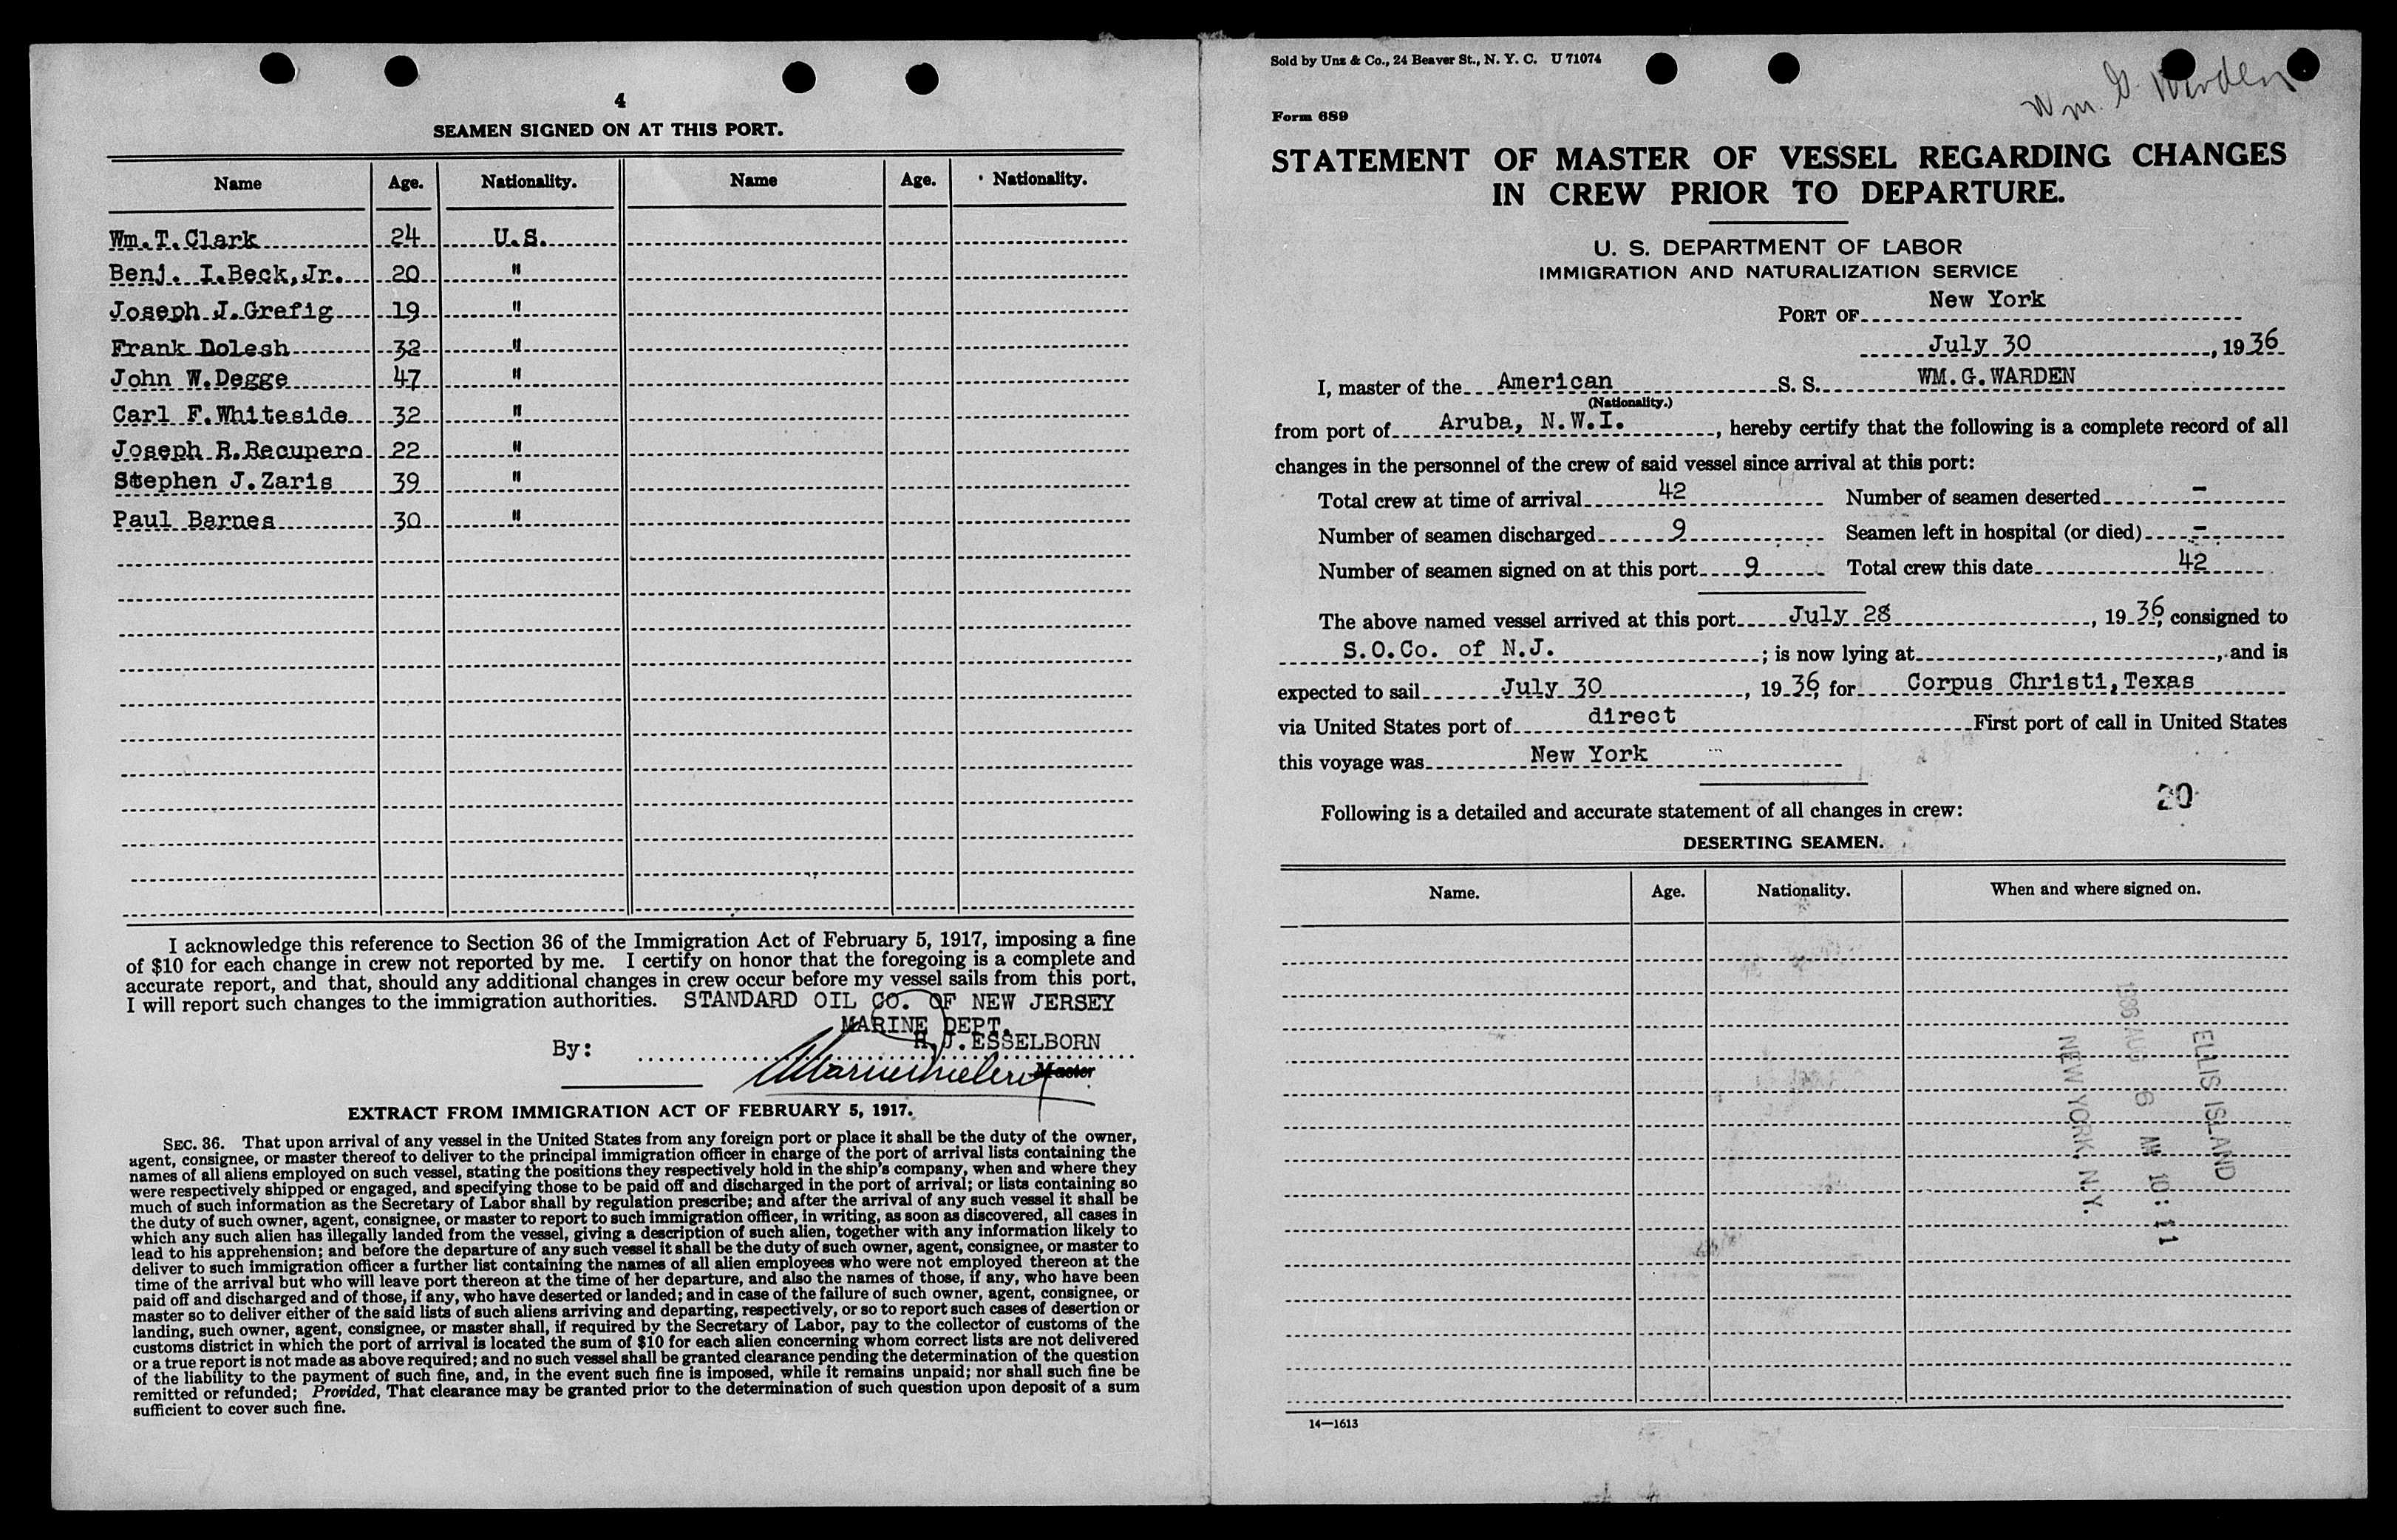 4
SEAMEN SIGNED ON AT THIS PORT.
Name Age. Nationality. Name Age. Nationality.
Wm. T. Clark 24 U.S.
Benj. I. Beck, Jr. 20 "
Joseph J. Grefig 19 "
Frank Dolesh 32 "
John W. Degge 47 "
Carl F. Whiteside 32 "
Joseph R. Recupero 22 "
Stephen J. Zaris 39 "
Paul Barnes 30 "
I acknowledge this reference to Section 36 of the Immigration Act of February 5, 1917, imposing a fine
of $10 for each change in crew not reported by me. I certify on honor that the foregoing is a complete and
accurate report, and that, should any additional changes in crew occur before my vessel sails from this port,
I will report such changes to the immigration authorities. STANDARD OIL CO. OF NEW JERSEY
MARINE DEPT.
By: H. J. ESSELBORN
Master
EXTRACT FROM IMMIGRATION ACT OF FEBRUARY 5, 1917.
SEC. 36. That upon arrival of any vessel in the United States from any foreign port or place it shall be the duty of the owner,
agent, consignee, or master thereof to deliver to the principal immigration officer in charge of the port of arrival lists containing the
names of all aliens employed on such vessel, stating the positions they respectively hold in the ship's company, when and where they
were respectively shipped or engaged, and specifying those to be paid off and discharged in the port of arrival; or lists containing so
much of such information as the Secretary of Labor shall by regulation prescribe; and after the arrival of any such vessel it shall be
the duty of such owner, agent, consignee, or master to report to such immigration officer, in writing, as soon as discovered, all cases in
which any such alien has illegally landed from the vessel, giving a description of such alien, together with any information likely to
lead to his apprehension; and before the departure of any such vessel it shall be the duty of such owner, agent, consignee, or master to
deliver to such immigration officer a further list containing the names of all alien employees who were not employed thereon at the
time of the arrival but who will leave port thereon at the time of her departure, and also the names of those, if any, who have been
paid off and discharged and of those, if any, who have deserted or landed; and in case of the failure of such owner, agent, consignee, or
master so to deliver either of the said lists of such aliens arriving and departing, respectively, or so to report such cases of desertion or
landing, such owner, agent, consignee, or master shall, if required by the Secretary of Labor, pay to the collector of customs of the
customs district in which the port of arrival is located the sum of $10 for each alien concerning whom correct lists are not delivered
or a true report is not made as above required; and no such vessel shall be granted clearance pending the determination of the question
of the liability to the payment of such fine, and, in the event such fine is imposed, while it remains unpaid; nor shall such fine be
remitted or refunded; Provided, That clearance may be granted prior to the determination of such question upon deposit of a sum
sufficient to cover such fine.
Sold by Unz & Co., 24 Beaver St., N. Y. C. U 71074
Wm. G. Warden
Form 689
STATEMENT OF MASTER OF VESSEL REGARDING CHANGES
IN CREW PRIOR TO DEPARTURE.
U. S. DEPARTMENT OF LABOR
IMMIGRATION AND NATURALIZATION SERVICE
PORT OF New York
July 30, 1936
I, master of the American S. S. WM. G. WARDEN
(Nationality.)
from port of Aruba, N.W.I., hereby certify that the following is a complete record of all
changes in the personnel of the crew of said vessel since arrival at this port:
Total crew at time of arrival 42 Number of seamen deserted -
Number of seamen discharged 9 Seamen left in hospital (or died) -
Number of seamen signed on at this port 9 Total crew this date 42
The above named vessel arrived at this port July 28, 1936, consigned to
S.O.Co. of N.J.; is now lying at , and is
expected to sail July 30, 1936, for Corpus Christi, Texas
via United States port of direct First port of call in United States
this voyage was New York
20
Following is a detailed and accurate statement of all changes in crew:
DESERTING SEAMEN.
Name. Age. Nationality. When and where signed on.
ELLIS ISLAND
1936 AUG 6 AM 10:11
NEW YORK, N.Y.
14—1613